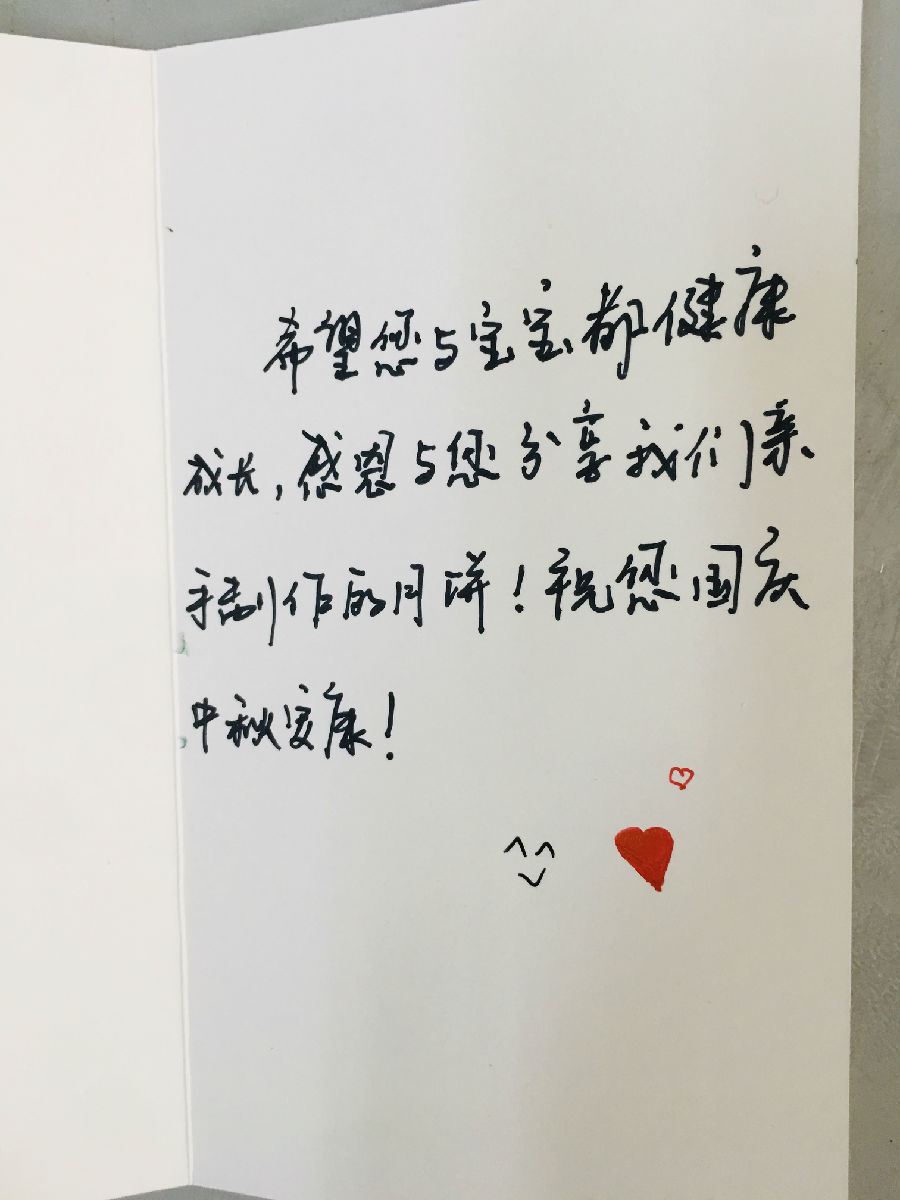 希望您与宝宝都健康
成长,感恩与您分享我们亲
手制作的月饼!祝您国庆
中秋安康!